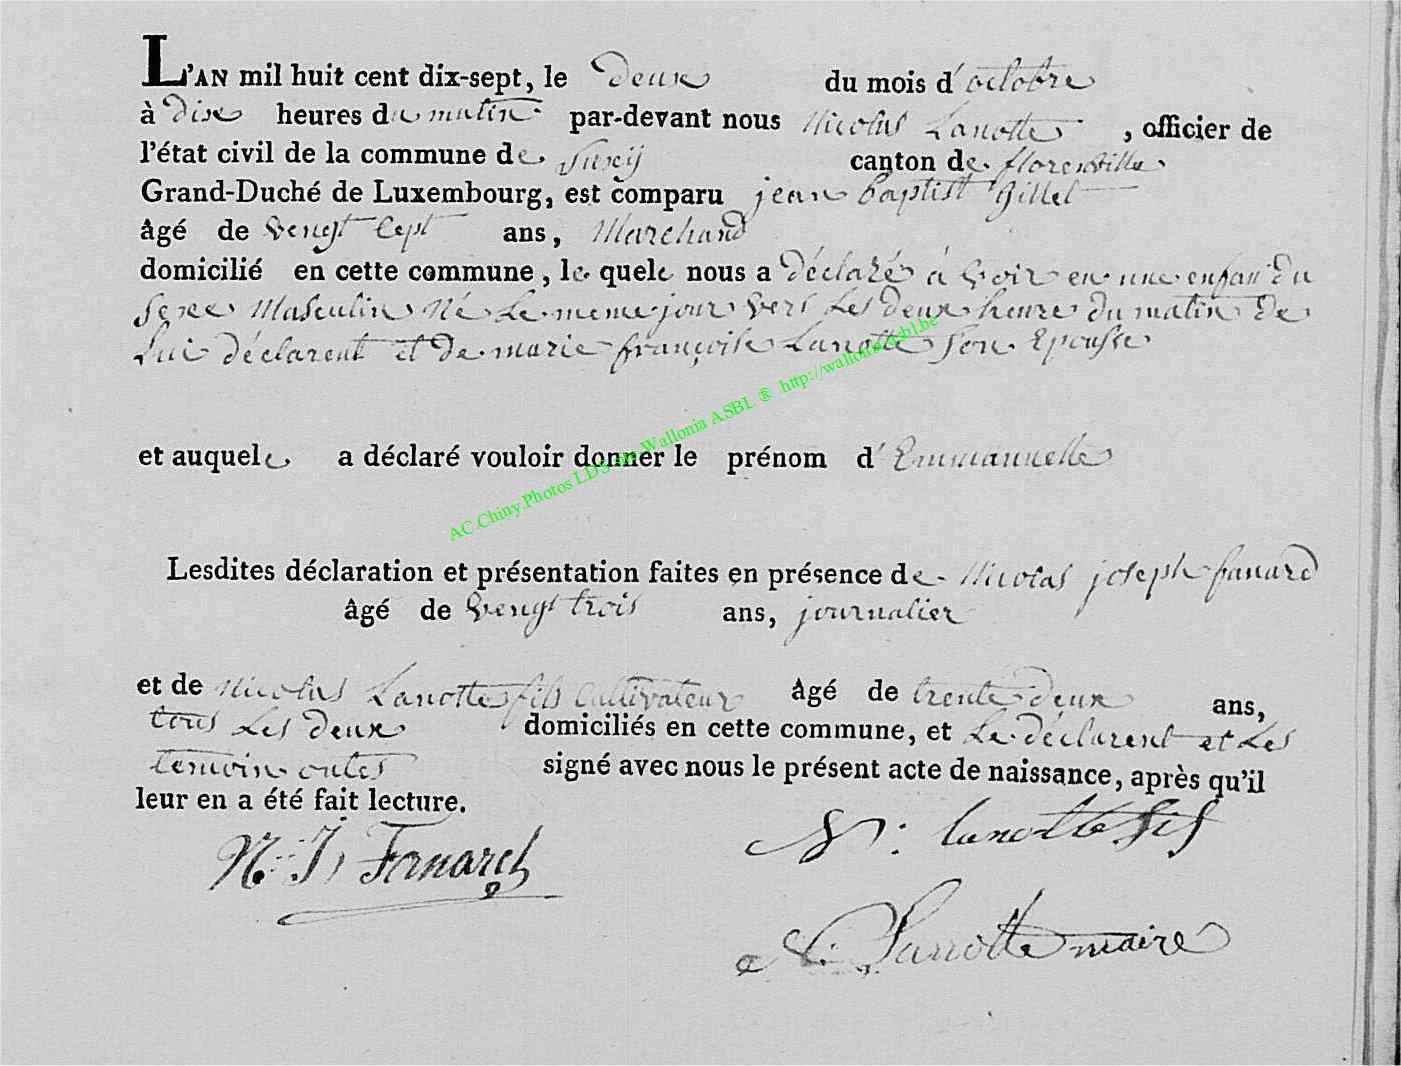 L'AN mil huit cent dix-sept, le deux du mois d'octobre
à dix heures du matin par-devant nous Nicolas Lanotte, officier de
l'état civil de la commune de Suxÿ canton de florenville
Grand-Duché de Luxembourg, est comparu jean baptist Gillet
âgé de Vengt Cept ans, Marchand
domicilié en cette commune, le quele nous a déclaré à Voir en une enfan du
Sexe Masculin Né Le meme jour vers Les deux heure du matin De
Lui déclarent et De marie françoise Lanotte Son Epousse
et auquele a déclaré vouloir donner le prénom d'Emmanuelle
Lesdites déclaration et présentation faites en présence de Nicolas joseph fanard
âgé de Vengt trois ans, journalier
et de Nicolas Lanotte fils Cultivateur âgé de trente deux ans,
tous Les deux domiciliés en cette commune, et Le déclarent et Les
temoin ontes signé avec nous le présent acte de naissance, après qu'il
leur en a été fait lecture.
N. J. Fanard
N: Lanotte fils
N. Lanotte maire
AC.Chiny.Photos LDS via Wallonia ASBL ® http://wallonia-asbl.be